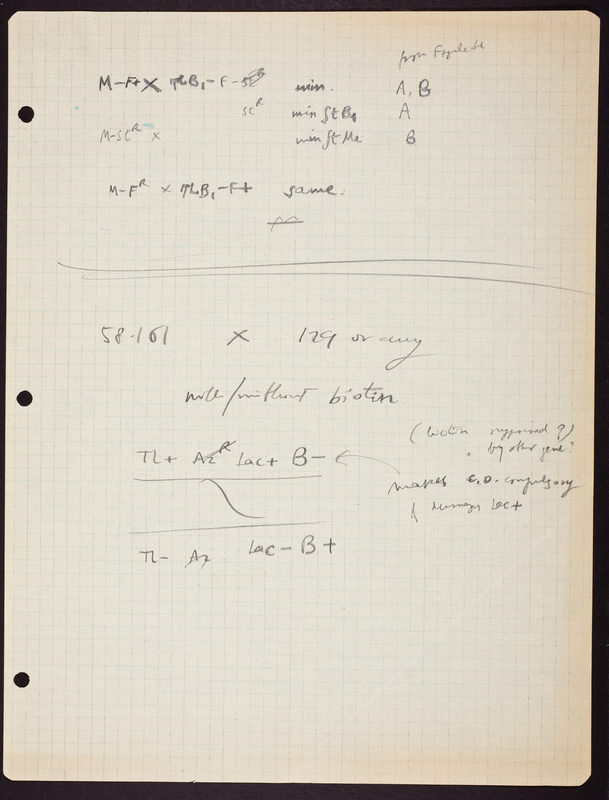 from
M-F+ X TLB₁-F- min. A, B
St^R min St B₁ A
M-St^R x min St Me B
M-F^R x TLB₁-F+ same.
58-161 X 129 or any
with/without biotin.
(biotin suppressed ?)
by other gene?
TL+ Az^R Lac+ B-
makes c.o. compulsory
Lac+
TL- Az Lac- B+